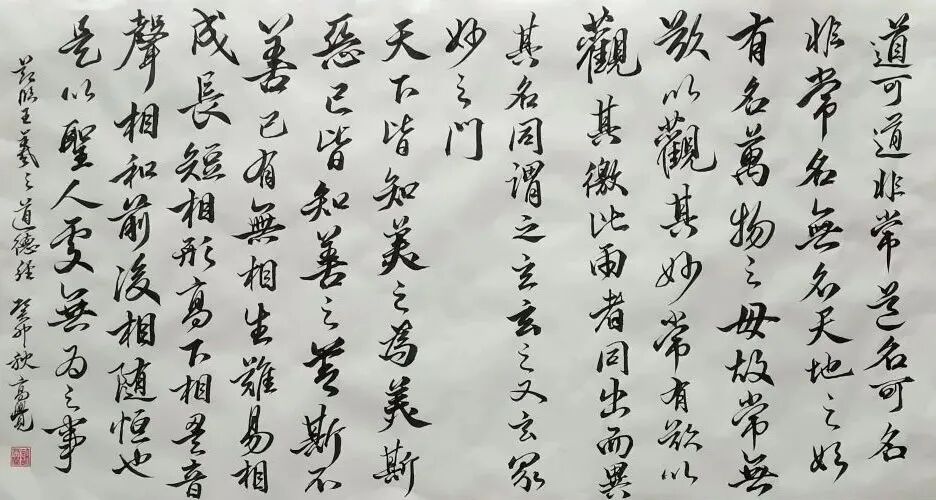 道可道非常道名可名
非常名無名天地之始
有名萬物之母故常無
欲以觀其妙常有欲以
觀其徼此兩者同出而異
其名同謂之玄玄之又玄眾
妙之門
天下皆知美之為美斯
惡已皆知善之善斯不
善已有無相生難易相
成長短相形高下相盈音
聲相和前後相隨恒也
是以聖人處無為之事
臨王羲之道德經 癸卯秋高覺